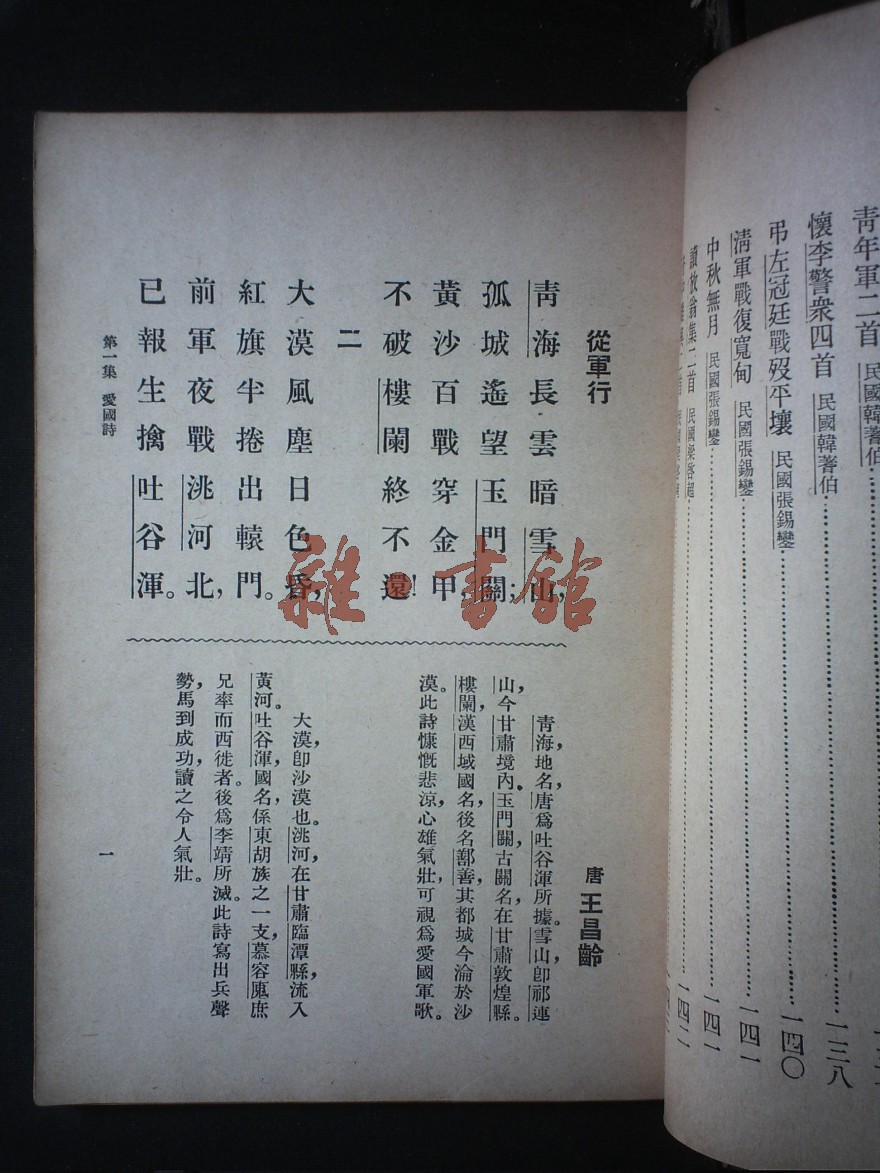 青年軍二首 民國韓蓍伯
懷李警衆四首 民國韓蓍伯……一三八
弔左冠廷戰歿平壤 民國張錫鑾……一四〇
淸軍戰復寬甸 民國張錫鑾……一四一
中秋無月 民國張錫鑾……一四一
讀放翁集二首 民國梁啓超……一四二
從軍行
唐 王昌齡
靑海長雲暗雪山，
孤城遙望玉門關；
黃沙百戰穿金甲，
不破樓闌終不還！
二
大漠風塵日色昏，
紅旗半捲出轅門。
前軍夜戰洮河北，
已報生擒吐谷渾。
靑海，地名，唐爲吐谷渾所據。雪山卽祁連
山，今甘肅境內。玉門關，古關名，在甘肅敦煌縣。
樓闌，漢西域國名，後名鄯善，其都城今淪於沙
漠。此詩慷慨悲涼，心雄氣壯，可視爲愛國軍歌。
大漠，卽沙漠也。洮河，在甘肅臨潭縣，流入
黃河。吐谷渾，國名，係東胡族之一支，慕容廆庶
兄率而西徙者。後爲李靖所滅。此詩寫出兵聲
勢，馬到成功，讀之令人氣壯。
第一集 愛國詩
一
雜·書館